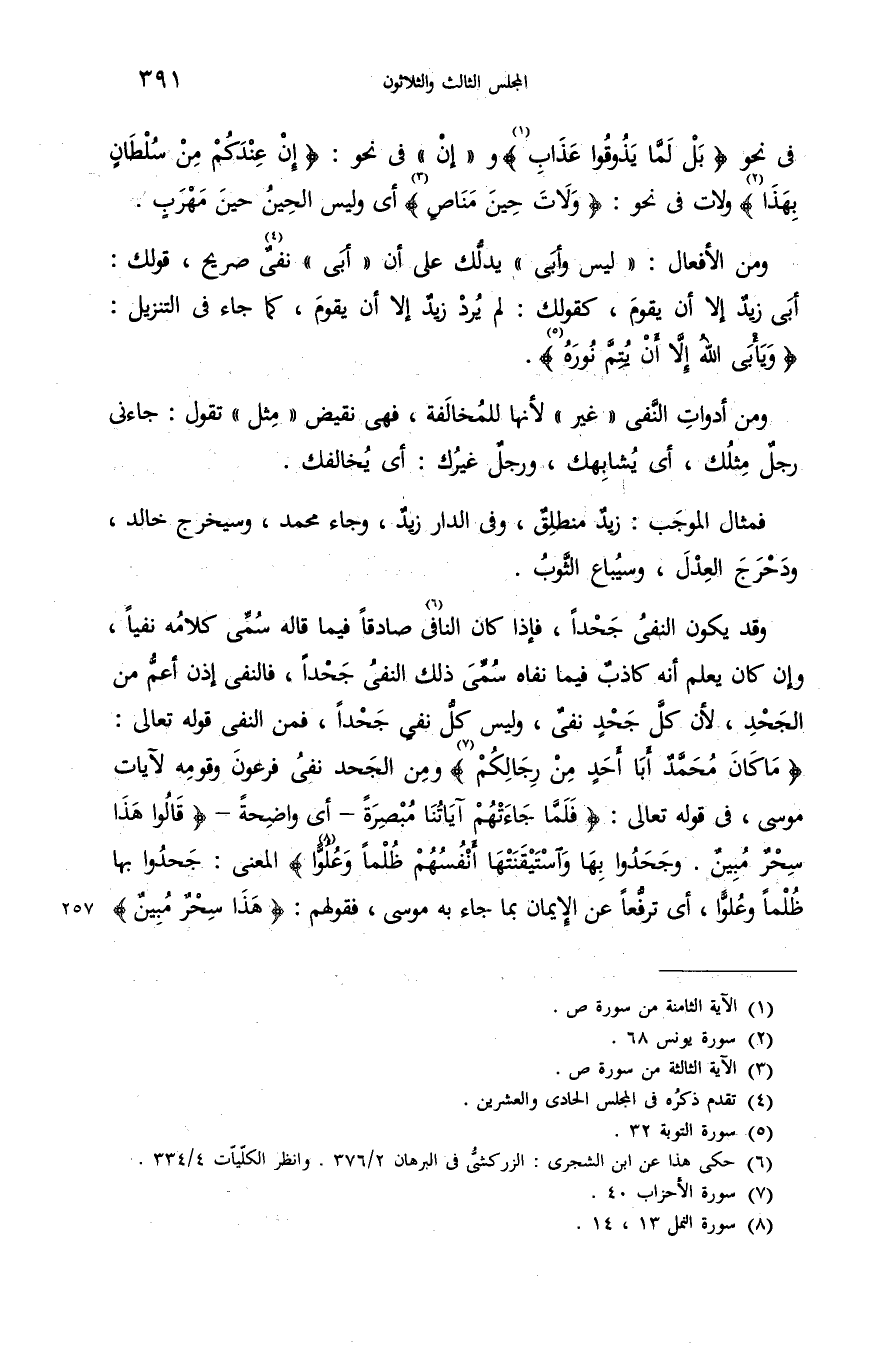 المجلس الثالث والثلاثون ٣٩١
فى نحو ﴿ بَلْ لَمَّا يَذُوقُوا عَذَابِ ﴾(١) و « إنْ » فى نحو : ﴿ إِنْ عِنْدَكُمْ مِنْ سُلْطَانٍ
بِهَذَا ﴾(٢) ولات فى نحو : ﴿ وَلَاتَ حِينَ مَنَاصٍ ﴾(٣) أى وليس الحِينُ حينَ مَهْرَبٍ .
ومن الأفعال : « ليس وأبَى » يدلُّك على أن « أبَى » نفىٌ(٤) صريح ، قولك :
أبَى زيدٌ إلا أن يقومَ ، كقولك : لم يُردْ زيدٌ إلا أن يقومَ ، كما جاء فى التنزيل :
﴿ وَيَأْبَى اللهُ إِلَّا أَنْ يُتِمَّ نُورَهُ ﴾(٥) .
ومن أدواتِ النَّفى « غير » لأنها للمُخالَفة ، فهى نقيض « مِثل » تقول : جاءنى
رجلٌ مِثلُك ، أى يُشابِهك ، ورجلٌ غيرُك : أى يُخالفك .
فمثال الموجَب : زيدٌ منطلِقٌ ، وفى الدار زيدٌ ، وجاء محمد ، وسيخرج خالد ،
ودَحْرَجَ العِدْلَ ، وسيُباع الثَّوبُ .
وقد يكون النفىُ جَحْداً ، فإذا كان النافى(٦) صادقاً فيما قاله سُمِّى كلامُه نفياً ،
وإن كان يعلم أنه كاذبٌ فيما نفاه سُمِّىَ ذلك النفىُ جَحْداً ، فالنفى إذن أعمُّ من
الجَحْدِ ، لأن كلَّ جَحْدٍ نفىٌ ، وليس كلُّ نفىٍ جَحْداً ، فمن النفى قوله تعالى :
﴿ مَاكَانَ مُحَمَّدٌ أَبَا أَحَدٍ مِنْ رِجَالِكُمْ ﴾(٧) ومِن الجَحد نفىُ فرعونَ وقومِه لآيات
موسى ، فى قوله تعالى : ﴿ فَلَمَّا جَاءَتْهُمْ آيَاتُنَا مُبْصِرَةً – أى واضِحةً – ﴿ قَالُوا هَذَا
سِحْرٌ مُبِينٌ . وجَحَدُوا بِهَا وَآسْتَيْقَنَتْهَا أَنْفُسُهُمْ ظُلْماً وَعُلُوًّا ﴾(٨) المعنى : جَحدُوا بها
ظُلْماً وعُلوًّا ، أى ترفُّعاً عن الإِيمان بما جاء به موسى ، فقولهم : ﴿ هَذَا سِحْرٌ مُبِينٌ ﴾ ٢٥٧
(١) الآية الثامنة من سورة ص .
(٢) سورة يونس ٦٨ .
(٣) الآية الثالثة من سورة ص .
(٤) تقدم ذكرُه فى المجلس الحادى والعشرين .
(٥) سورة التوبة ٣٢ .
(٦) حكى هذا عن ابن الشجرى : الزركشىُّ فى البرهان ٣٧٦/٢ . وانظر الكلّيات ٣٣٤/٤ .
(٧) سورة الأحزاب ٤٠ .
(٨) سورة النمل ١٣ ، ١٤ .